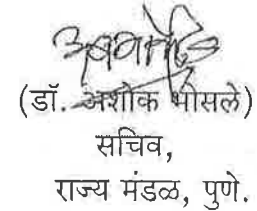 (डॉ. अशोक भोसले)
सचिव,
राज्य मंडळ, पुणे.